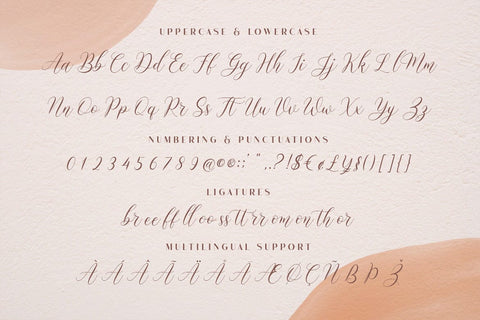 UPPERCASE & LOWERCASE
Aa Bb Cc Dd Ee Ff Gg Hh Ii Jj Kk Ll Mm
Nn Oo Pp Qq Rr Ss Tt Uu Vv Ww Xx Yy Zz
NUMBERING & PUNCTUATIONS
0 1 2 3 4 5 6 7 8 9 @ © ® : ; ' " , . ? ! $ € ¢ £ ¥ § ( ) [ ] { }
LIGATURES
br ee ff ll oo ss tt rr om on th or
MULTILINGUAL SUPPORT
À Á Â Ã Ä Å Æ Ø Ç Ñ ß Þ